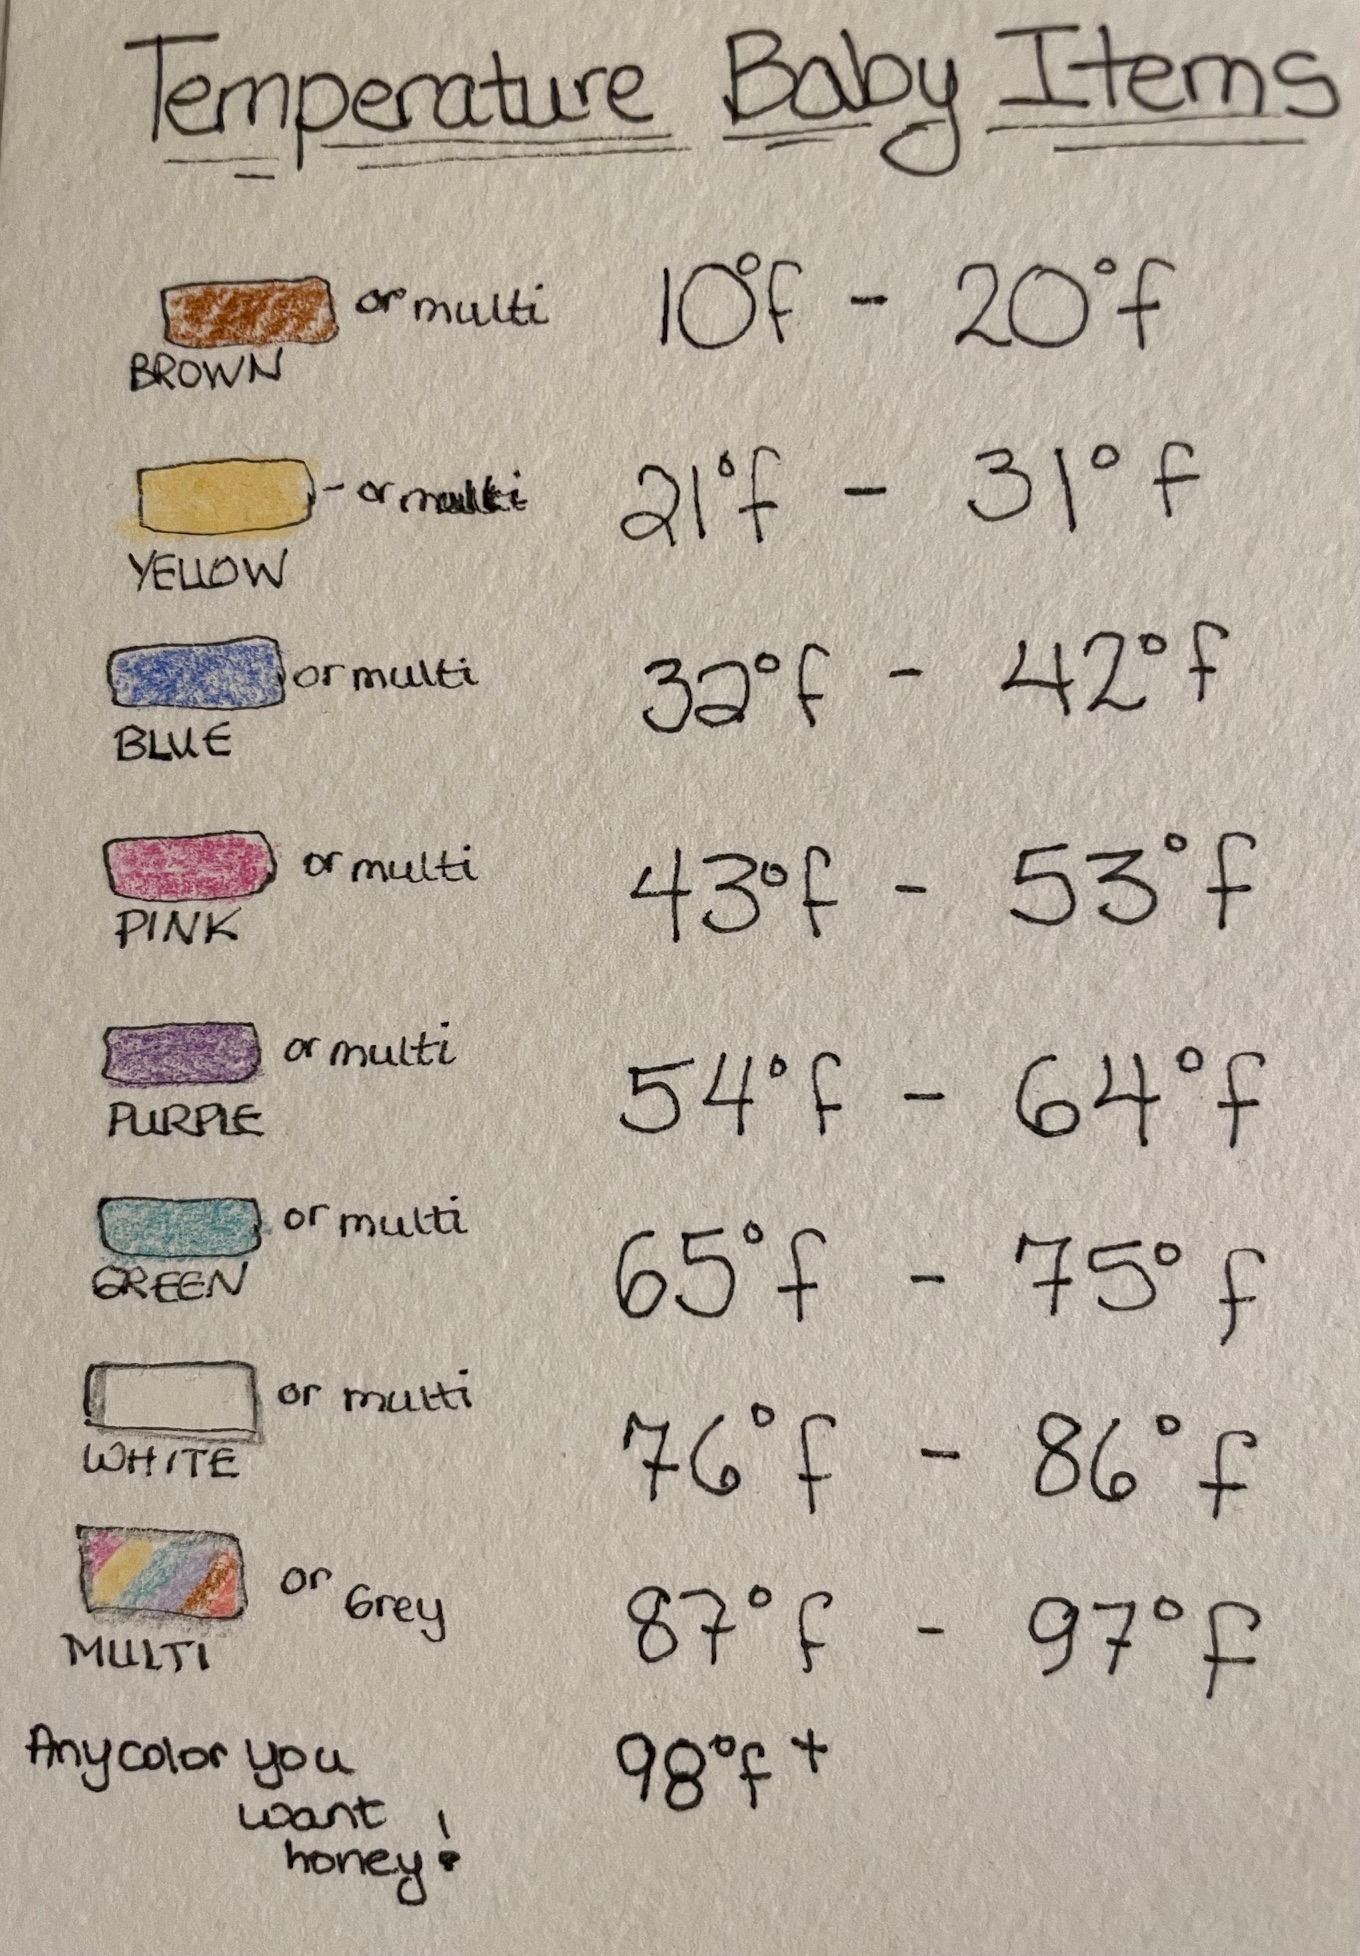 Temperature Baby Items
or multi 10°f - 20°f
BROWN
- or multi 21°f - 31°f
YELLOW
or multi 32°f - 42°f
BLUE
or multi 43°f - 53°f
PINK
or multi 54°f - 64°f
PURPLE
or multi 65°f - 75°f
GREEN
or multi 76°f - 86°f
WHITE
or Grey 87°f - 97°f
MULTI
Any color you 98°f +
want
honey!